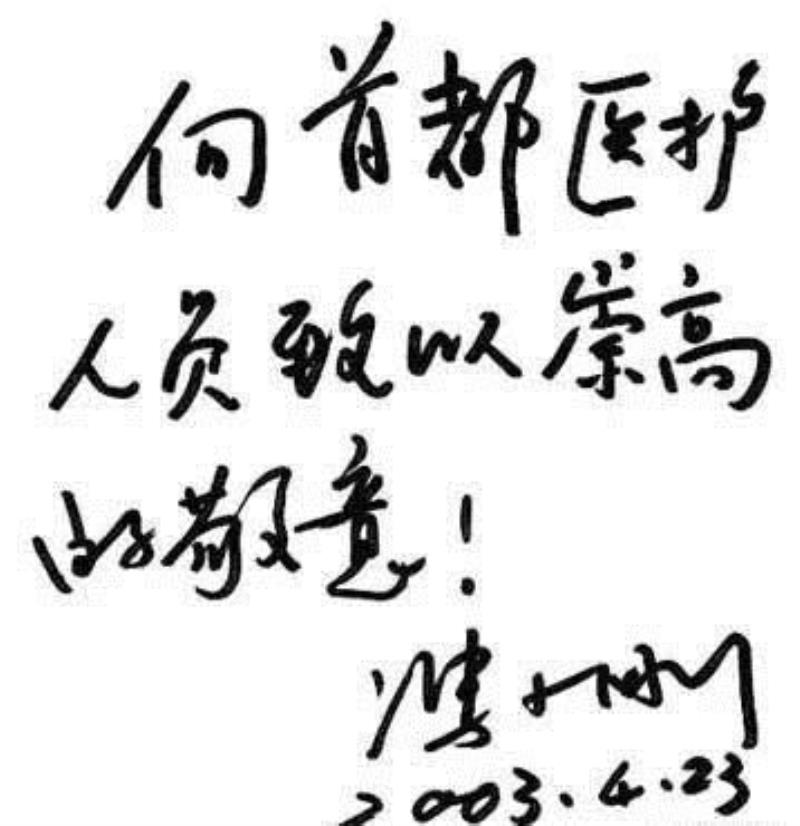 向首都医护
人员致以崇高
的敬意！
2003.4.23